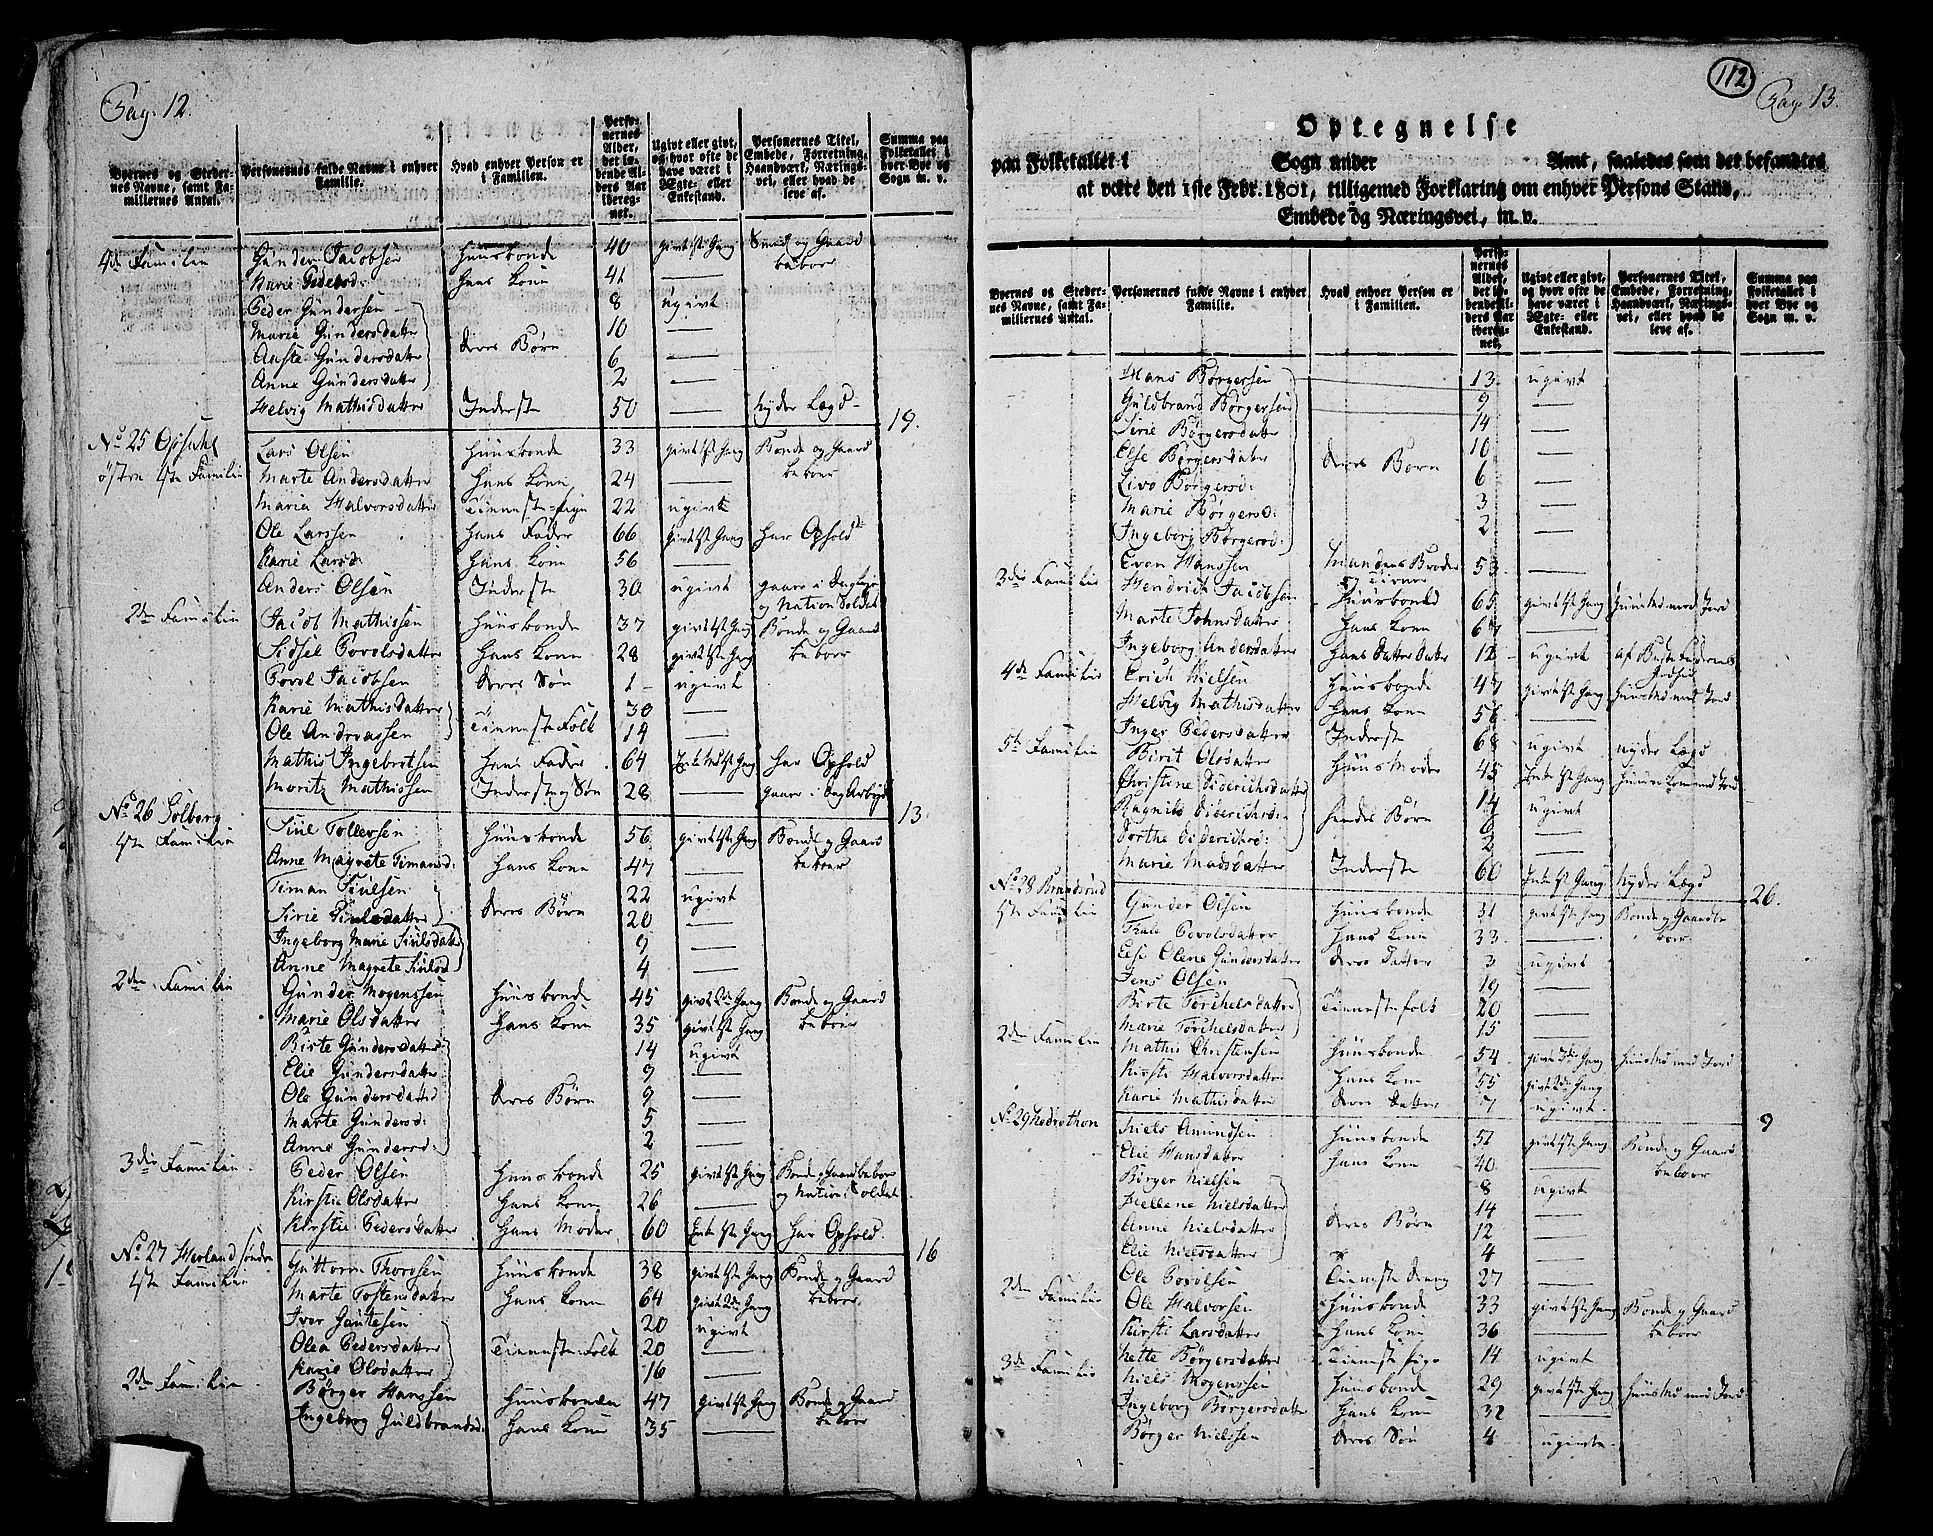 Pag. 12.
Byernes og Steder-
nes Navne, samt Fa-
milliernes Antal.
Personernes fulde Navne i enhver
Familie.
Hvad enhver Person er
i Familien.
Perso-
nernes
Alder,
det lø-
bende Al-
ders Aar
iberegnet.
Ugivt eller givt,
og hvor ofte de
have været i
Ægte- eller
Enkestand.
Personernes Titel,
Embede, Forretning,
Haandværk, Nærings-
vei, eller hvad de
leve af.
Summa paa
Folketallet i
hver Bye og
Sogn m. v.
4de Familie Gunder Jacobsen Huusbonde 40 givt 1ste Gang Smed og Gaard
beboer
Karie Pedersd: Hans Kone 41 —
Peder Gundersen 8 ugivt
Marie Gundersdatter 10 —
deres Børn
Anste Gundersdatter 6 —
Anne Gundersdatter 2 —
Helvig Mathisdatter Inderste 50 — Nyder Lægd 19.
No 25 Opsahl
østre 1ste Familie
Lars Olsen Huusbonde 33 givt 1ste Gang Bonde og Gaard
beboer
Marte Andersdatter Hans Kone 24 —
Maria Halvorsdatter Tieneste-Pige 22 ugivt
Ole Larssen Hans Fader 66 givt 1st Gang Har Ophold
Karie Larsd: Hans Kone 56 —
Anders Olsen Inderste 30 ugivt gaaer i Dagleye
og Nation Soldat
2den Familie Jacob Mathissen Huusbonde 37 givt 1st Gang Bonde og Gaard
beboer
Sidsel Povolsdatter Hans Kone 28 givt 1ste Gang
Povol Jacobsen deres Søn 1 ugivt
Karie Mathisdatter 30 —
Tieneste Folk
Ole Andreassen 14 —
Mathis Ingebretsen Hans Fader 64 Enkem 1st Gang Har Ophold
Moritz Mathissen Inderste og Søn 28 — gaaer i Dag Arbeyd 13.
No 26 Solberg
1ste Familie
Siul Tollevsen Huusbonde 56 givt 1ste Gang Bonde og Gaard
beboer
Anne Magrete Timansd: Hans Kone 47 —
Timan Siulsen 22 ugivt
deres Børn
Sirie Siulsdatter 20 —
Ingeborg Marie Siulsdatt 9 —
Anne Magrete Siulsd 4 —
2den Familie Gunder Mogenssen Huusbonde 45 givt 2den Gang Bonde og Gaard
beboer
Marie Olsdatter Hans Kone 35 givt 1st Gang
Birte Gundersdatter 14 ugivt
Elie Gundersdatter 9 —
Ole Gundersdatter deres Børn 9 —
Marte Gundersd: 5 —
Anne Gundersd: 2 —
3die Familie Peder Olsen Huusbonde 25 givt 1st Gang Bonde og Gaardbeboer
og Nation: Soldat
Kirstie Olsdatter Hans Kone 26 —
Kirstie Pedersdatter Hans Moder 60 Enke 1st Gang Har Ophold. 16
No 27 Herland søndre
1ste Familie
Guttorm Thorosen Huusbonde 38 givt 1ste Gang Bonde og Gaard
beboer
Marte Tostensdatter Hans Kone 64 givt 2den Gang
Iver Gautesen 20 ugivt
Olea Pedersdatter Tieneste Folk 20 —
Karie Olsdatter 16 —
2den Familie Børger Hanssen Huusbonden 47 givt 1st Gang Bonde og Gaard
beboer
Ingeborg Guldbrandsd: Hans Kone 35 —
112
Pag. 13.
Optegnelse
paa Folketallet i Sogn under Amt, saaledes som det befandtes
at være den 1ste Febr. 1801, tilligemed Forklaring om enhver Persons Stand,
Embede og Næringsvei, m. v.
Byernes og Steder-
nes Navne, samt Fa-
milliernes Antal.
Personernes fulde Navne i enhver
Familie.
Hvad enhver Person er
i Familien.
Perso-
nernes
Alder,
det lø-
bende Al-
ders Aar
iberegnet.
Ugivt eller givt,
og hvor ofte de
have været i
Ægte- eller
Enkestand.
Personernes Titel,
Embede, Forretning,
Haandværk, Nærings-
vei, eller hvad de
leve af.
Summa paa
Folketallet i
hver Bye og
Sogn m. v.
Hans Børgersen 13 ugivt
Guldbrand Børgersen 9 —
Sirie Børgersdatter 14 —
Else Børgersdatter 10 —
deres Børn
Live Børgersd: 6 —
Marie Børgersd: 3 —
Ingeborg Børgersd: 2 —
Even Hanssen Mandens Broder
og Tiener 53 —
3die Familie Hendrich Jacobsen Huusbonde 65 givt 1st Gang Huusmd med Jord
Marte Johnsdatter Hans Kone 67 —
Ingeborg Andersdatter Hans Datter Datter 12 ugivt
4de Familie Erich Nielsen Huusbonde 47 givt 1st Gang Huusmd med Jord
Helvig Mathisdatter Hans Kone 56 —
Inger Pedersdatter Inderste 68 ugivt nyder Lægd
5te Familie Birit Olsdatter Huus Moder 45 Enke 1st Gang
Christine Diderichsdatter 14 ugivt
Ragnild Diderichsd: hendes Børn 6 —
Dorthe Diderichsd: 2 —
Marie Madsdatter Inderste 60 Enke 1st Gang Nyder Lægd 26.
No 28 Brandsrud
1ste Familie
Gunder Olsen Huusbonde 31 givt 1ste Gang Bonde og Gaardbe
boer
Povolsdatter Hans Kone 33 —
Olene Gundersdatter deres Datter 3 ugivt
Jens Olsen 19 —
Birte Torchelsdatter Tienestefolk 20 —
Marie Torchelsdatter 15 —
2den Familie Mathis Christensen Huusbonde 54 givt 3die Gang Huusmd med Jord
Kirsti Halvorsdatter Hans Kone 55 givt 2den Gang
Karie Mathisdatter deres Datter 7 ugivt 9
No 29 Nedrethon
Niels Amundsen Huusbonde 51 givt 1ste Gang Bonde og Gaard
beboer
Elie Hansdatter Hans Kone 40 —
Børger Nielsen 8 ugivt
Nielsdatter 14 —
Anne Nielsdatter deres Børn 12 —
Elie Nielsdatter 4 —
Ole Povolsen Tieneste dreng 27 —
2den Familie Ole Halvorsen Huusbonde 33 givt 1st Gang Bonde og Gaard
beboer
Kirsti Larsdatter Hans Kone 36 —
Nette Børgersdatter Tieneste pige 14 ugivt
3de Familie Niels Mogenssen Huusbonde 29 givt 1ste Gang Huusmd med Jord
Ingeborg Børgersdatter Hans Kone 32 —
Børger Nielssen deres Søn 4 ugivte